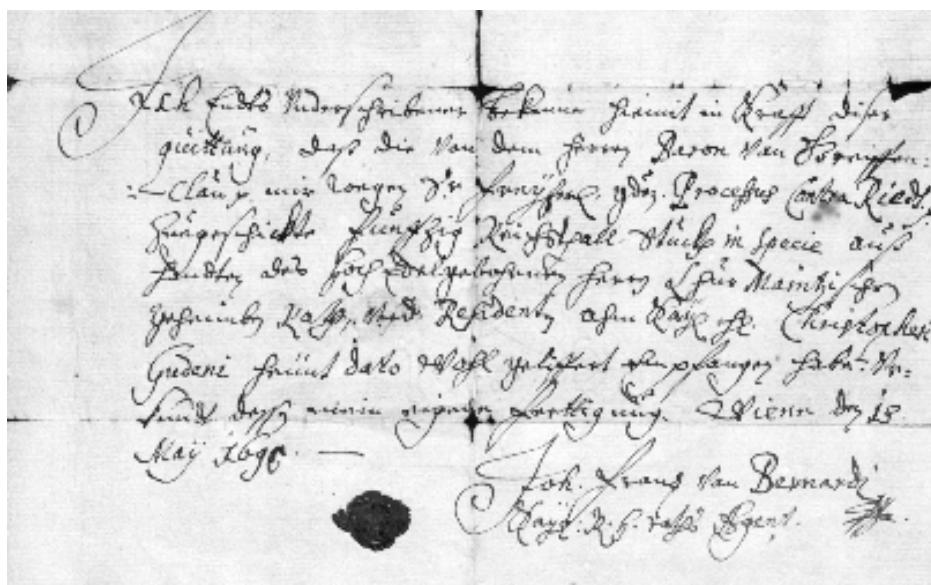 Ich Endts Underschribener bekenne hiemit in Krafft diser
quittung, daß die von dem Herren Baron von Greiffen=
=Clau mir wegen Processus Contra Riedt
zuegeschickte fünffzig Reichsthall. Stückh in specie auß
Handten des HochEdelgebohrnen Herrn Chur Maintzischen
geheimben Raths, und Residenten Christophen
Gudeni heunt dato wohl gelifert empfangen habe. Ur=
kundt dessen mein eigene Fertigung. Wienn den 18
May 169
Joh. Frantz von Bernardi
Kays. R. H. raths Agent.